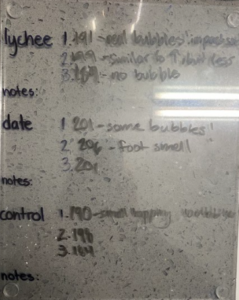 lychee 1.191 - bubbles!
2.199 - similar to 1 but less
3.169 - no bubble
notes:
date 1.201 - some bubbles!
2.206 - foot smell
3.201
notes:
control 1.190 - small
2.198
3.164
notes: